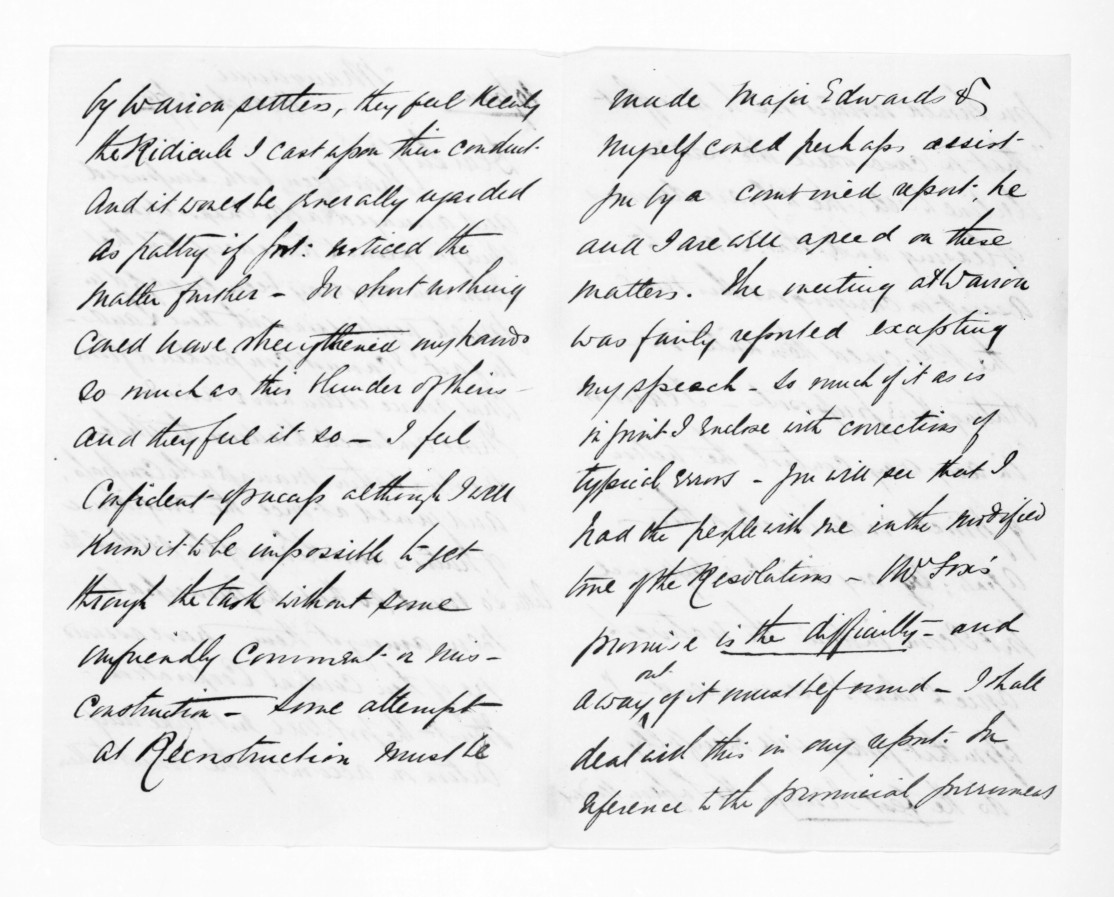 by Wairoa settlers, they feel keenly
the Ridicule I cast upon their conduct.
And it would be generally regarded
as paltry if Govt: noticed the
matter further – In short nothing
could have strengthened my hands
so much as this blunder of theirs –
and they feel it so – I feel
Confident of success although I well
Know it to be impossible to get
through the task without some
unfriendly comment or mis-
construction – Some attempt
at Reconstruction must be
made Major Edwards &
Myself could perhaps assist
you by a combined report: he
and I are well agreed on these
matters. The meeting at Wairoa
was fairly reported excepting
my speech – So much of it as is
in print I enclose with corrections of
typical errors – You will see that I
had the people with me in the modified
tone of the Resolutions – Mr Fox's
promise is the difficulty – and
a way out of it must be found – I shall
deal with this in my report. In
reference to the provincial